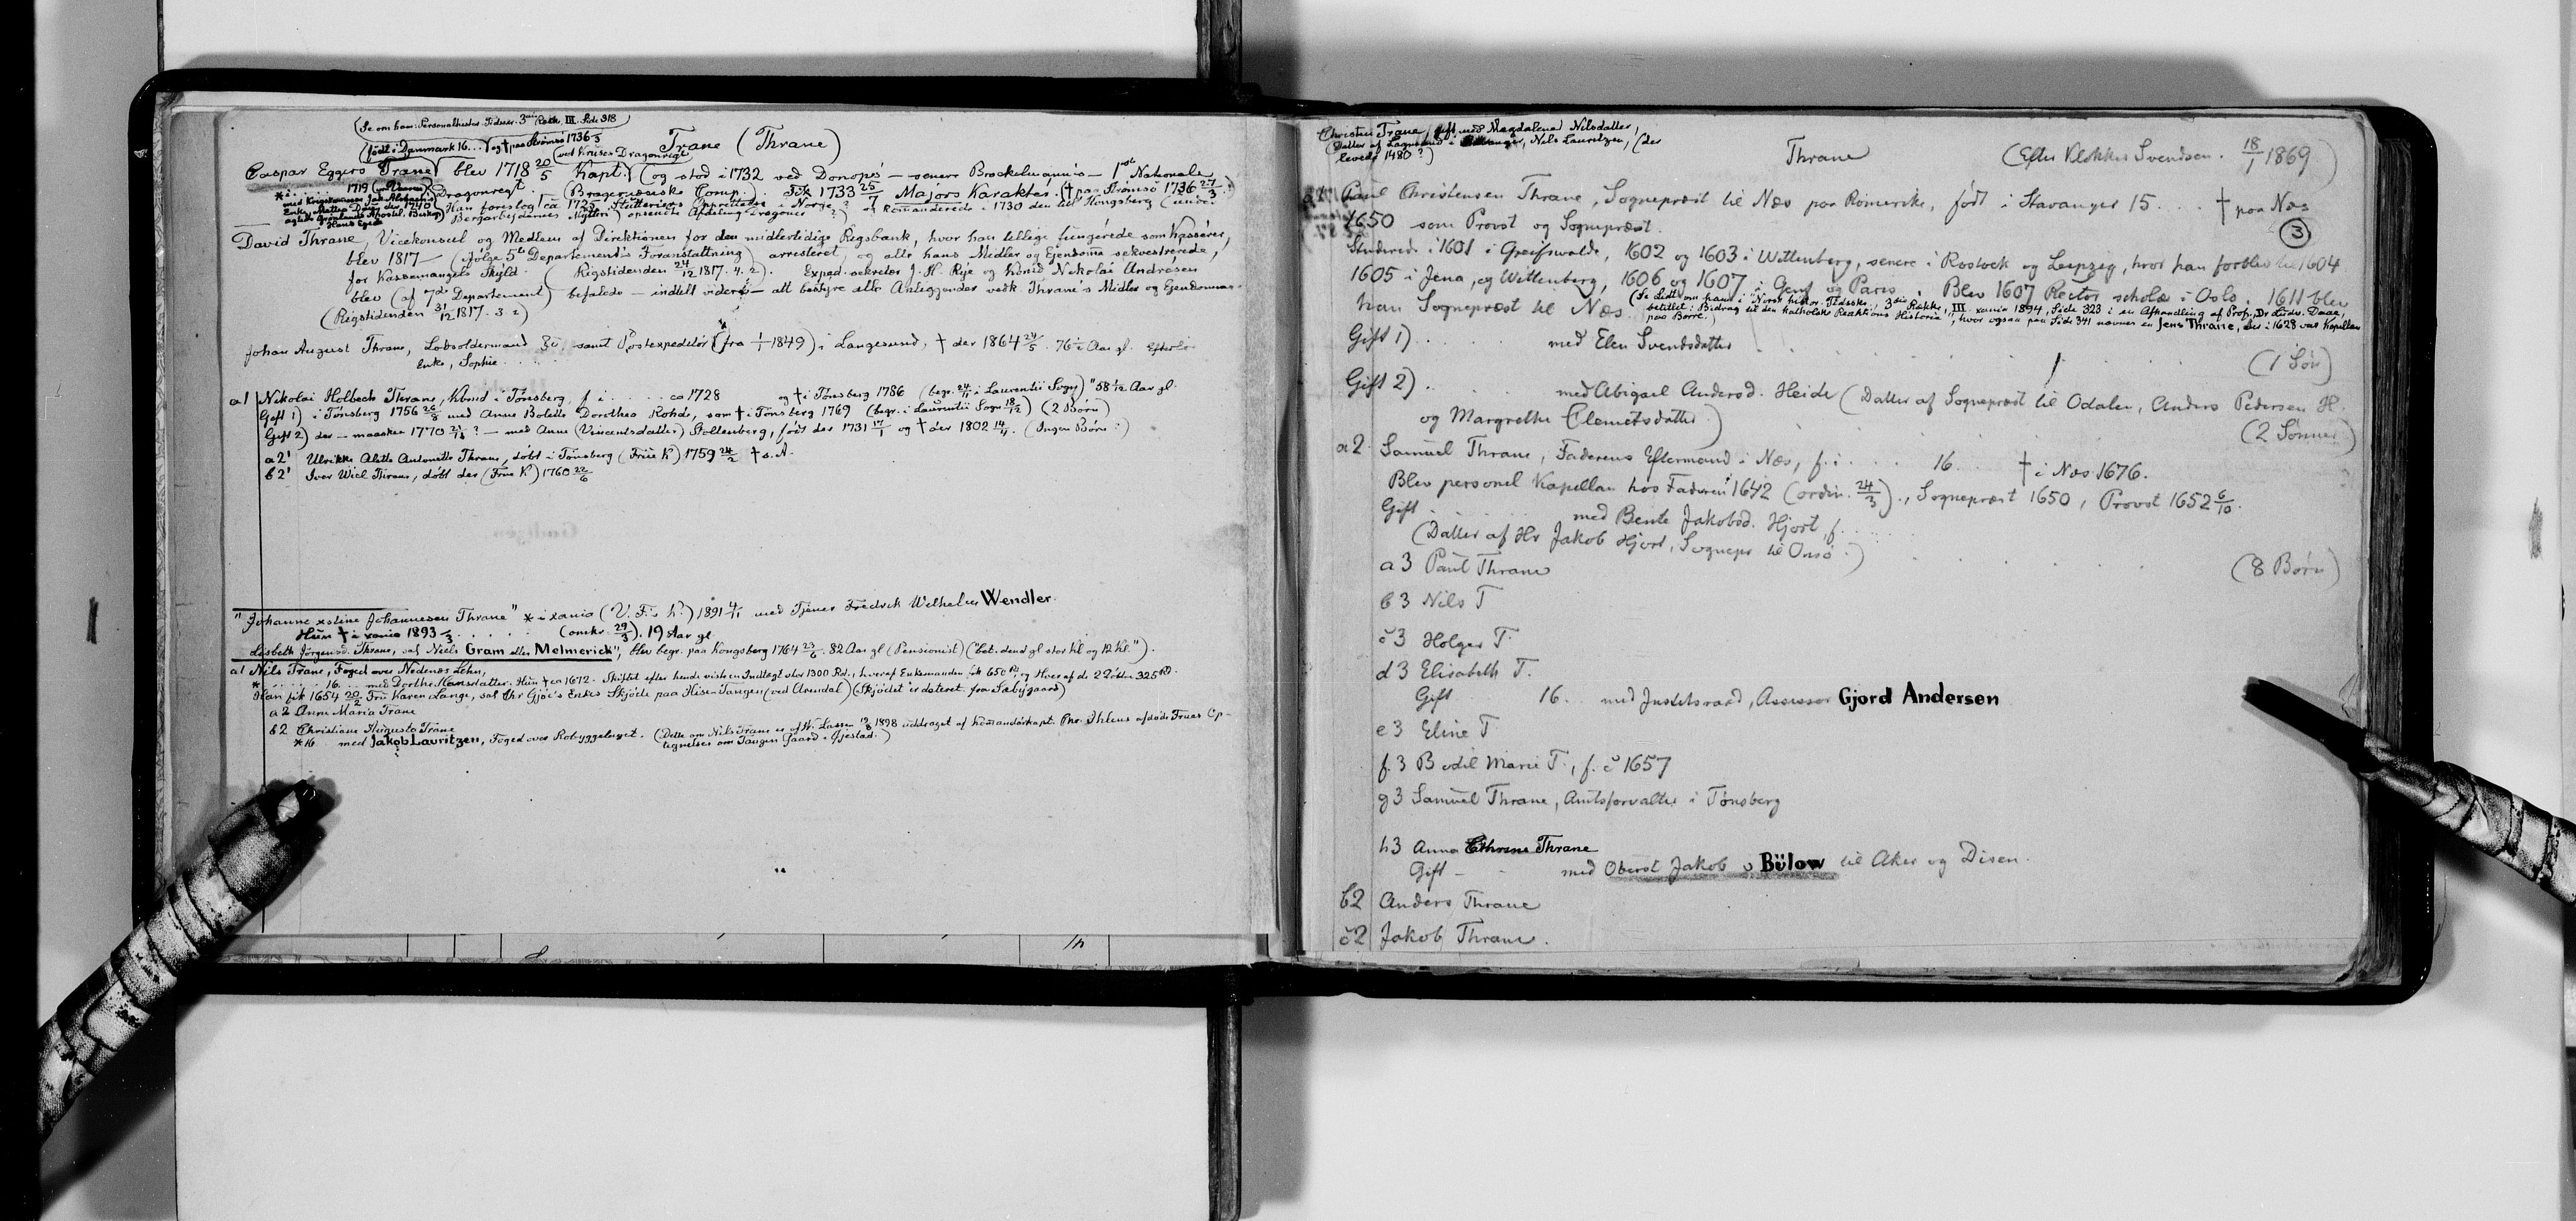 (Se om ham: Personalhistor. Tidsskr. 3die Række, III. Side 318
(født i Danmark 16... og † paa Strømsø 1736 27/3
Trane (Thrane)
(ved Kruses Dragonregt
Caspar Eggers Trane blev 1718 20/5 Kapt. (og stod i 1732 ved Donop's — senere Brockelmann's — 1ste Nationale
Dragonregt. (Bragernæsiske Comp.). Fik 1733 25/7 Majors Karakter. († paa Strømsø 1736 27/3 ?)
* i ..... 1719
med Krigskommissær
Enke Mette
Grønlands Apostel, Biskop
Hans Egede
Han foreslog ca 1725 Stutteriers Oprettelse i Norge? og kommanderede i 1730 den til Kongsberg (under
Bergarbejdernes Mytteri) opsendte Afdeling Dragoner ?)
David Thrane, Vicekonsul og Medlem af Direktionen for den midlertidige Rigsbank, hvor han tillige fungerede som Kasserer,
blev 1817 — (ifølge 5te Departements Foranstaltning) arresteret, og alle hans Midler og Ejendomme sekvestrerede,
for Kassemangels Skyld. (Rigstidenden 24/12 1817. 4. 2). Exped.sekretær J. H. Rye og Kbmd Nikolai Andresen
blev (af 7de Departement) befalede — indtil videre — att bestyre alle Anliggender vedk Thrane's Midler og Ejendomme.
(Rigstidenden 31/12 1817. 3 2)
Johan August Thrane, Lodsoldermand samt Postexpeditør (fra 1/1 1849) i Langesund, † der 1864 24/5 76½ Aar gl. Efterlo
Enke, Sophie
a1 Nikolai Holbech Thrane, Kbmd i Tønsberg, f i ..... ca 1728 og † i Tønsberg 1786 (begr. 24/11 i Laurentii Sogn) "58 1/12 Aar gl.
Gift 1) i Tønsberg 1756 26/8 med Anne Bolette Dorothea Rohde, som † i Tønsberg 1769 (begr. i Laurentii Sogn 18/12) (2 Børn)
Gift 2) der — maaske 1770 21/12 ? — med Anne (Vincentsdatter) Stoltenberg, født der 1731 17/1 og † der 1802 14/11. (Ingen Børn?)
a2' Ulrikke Alette Antonette Thrane, døbt i Tønsberg (Frue K) 1759 24/2 † s. A.
b2' Iver Wiel Thrane, døbt der (Frue K) 1760 22/6
"Johanne xstine Johannesen Thrane" * i xania (V. F. s. k.) 1891 4/11 med Tjener Fredrik Wilhelm Wendler.
Hun † i xania 1893 /3 ..... (omkr. 29/3). 19 Aar gl
Lisbeth Jørgensd. Thrane, sal Niels Gram eller Melmerich", blev begr. paa Kongsberg 1764 23/6. 82 Aar gl (Pensionist) ("bet. dend gl stor kl og 12 kl.").
a1 Nils Trane, Foged over Nedenæs Lehn,
* ..... 16.. med Dorthe Hansdatter. Hun † ca 1672. Skiftet efter hende viste en Indtægt stor 1300 Rd., hvoraf Enkemanden fik 650 Rd, og Hver af de 2 Døttre 325 Rd.
Han fik 1654 20/2 Fru Karen Lange, sal Chr Gjøe's Enkes Skjøde paa Hisen Tangen (ved Arendal) (Skjødet er dateret fra Sæbygaard)
a2 Anne Maria Trane
b2 Christiane Augusta Trane
* 16 med Jakob Lauritzen, Foged over Robyggelaget. (Dette om Nils Trane er af W. Lassen 12/8 1898 uddraget af Kommandørkapt. Ihlens afdøde Frues Op-
tegnelser om Tangen Gaard i Øjestad.)
Christen Trane, gift med Magdalena Nilsdatter,
(Datter af Lagmand i Stavanger, Nils Lauritzen, (der
levede 1480?)
Thrane (Efter Klokker Svendsen. 18/1 1869)
Paul Christensen Thrane, Sognepræst til Næs paa Romerike, født i Stavanger 15.... † paa Næs
1650 som Provst og Sognepræst.
(3)
Studerede i 1601 i Greifswalde, 1602 og 1603 i Wittenberg, senere i Rostock og Leipzig, hvor han forblev til 1604
1605 i Jena, og Wittenberg, 1606 og 1607 i Genf og Paris. Blev 1607 Rector scholæ i Oslo. 1611 blev
han Sognepræst til Næs. (Se Lidt om ham i "Norsk histor. Tidsskr., 3die Række, III. xania 1894, Side 323 i en Afhandling af Prof., Dr Ludv. Daae,
betitlet: Bidrag til den katholske Reaktions Historia, hvor ogsaa paa Side 341 nævnes en Jens Thrane, der i 1628 var Kapellan
paa Borre.)
Gift 1) . . . med Elen Svendsdatter . . . (1 Søn)
Gift 2) . . . med Abigael Andersd. Heide (Datter af Sognepræst til Odalen, Anders Pedersen H.
og Margrethe Clemetsdatter.) (2 Sønner)
a2 Samuel Thrane, Faderens Eftermand i Næs, f. i ..... 16.... † i Næs 1676.
Blev personel Kapellan hos Faderen 1642 (ordin. 24/3)., Sognepræst 1650, Provst 1652 6/10.
Gift . . . med Bente Jakobsd. Hjort, f. . .
(Datter af Hr Jakob Hjort, Sognepr til Onsø.) . . . (8 Børn)
a3 Paul Thrane
b3 Nils T
c3 Holger T.
d3 Elisabeth T.
Gift 16.. med Justitsraad, Assessor Gjord Andersen
e3 Eline T
f.3 Bodil Marie T., f. c 1657
g3 Samuel Thrane, Amtsforvalter i Tønsberg
h3 Anna Cthrine Thrane
Gift — - med Oberst Jakob v Bülow til Aker og Disen.
b2 Anders Thrane
c2 Jakob Thrane.